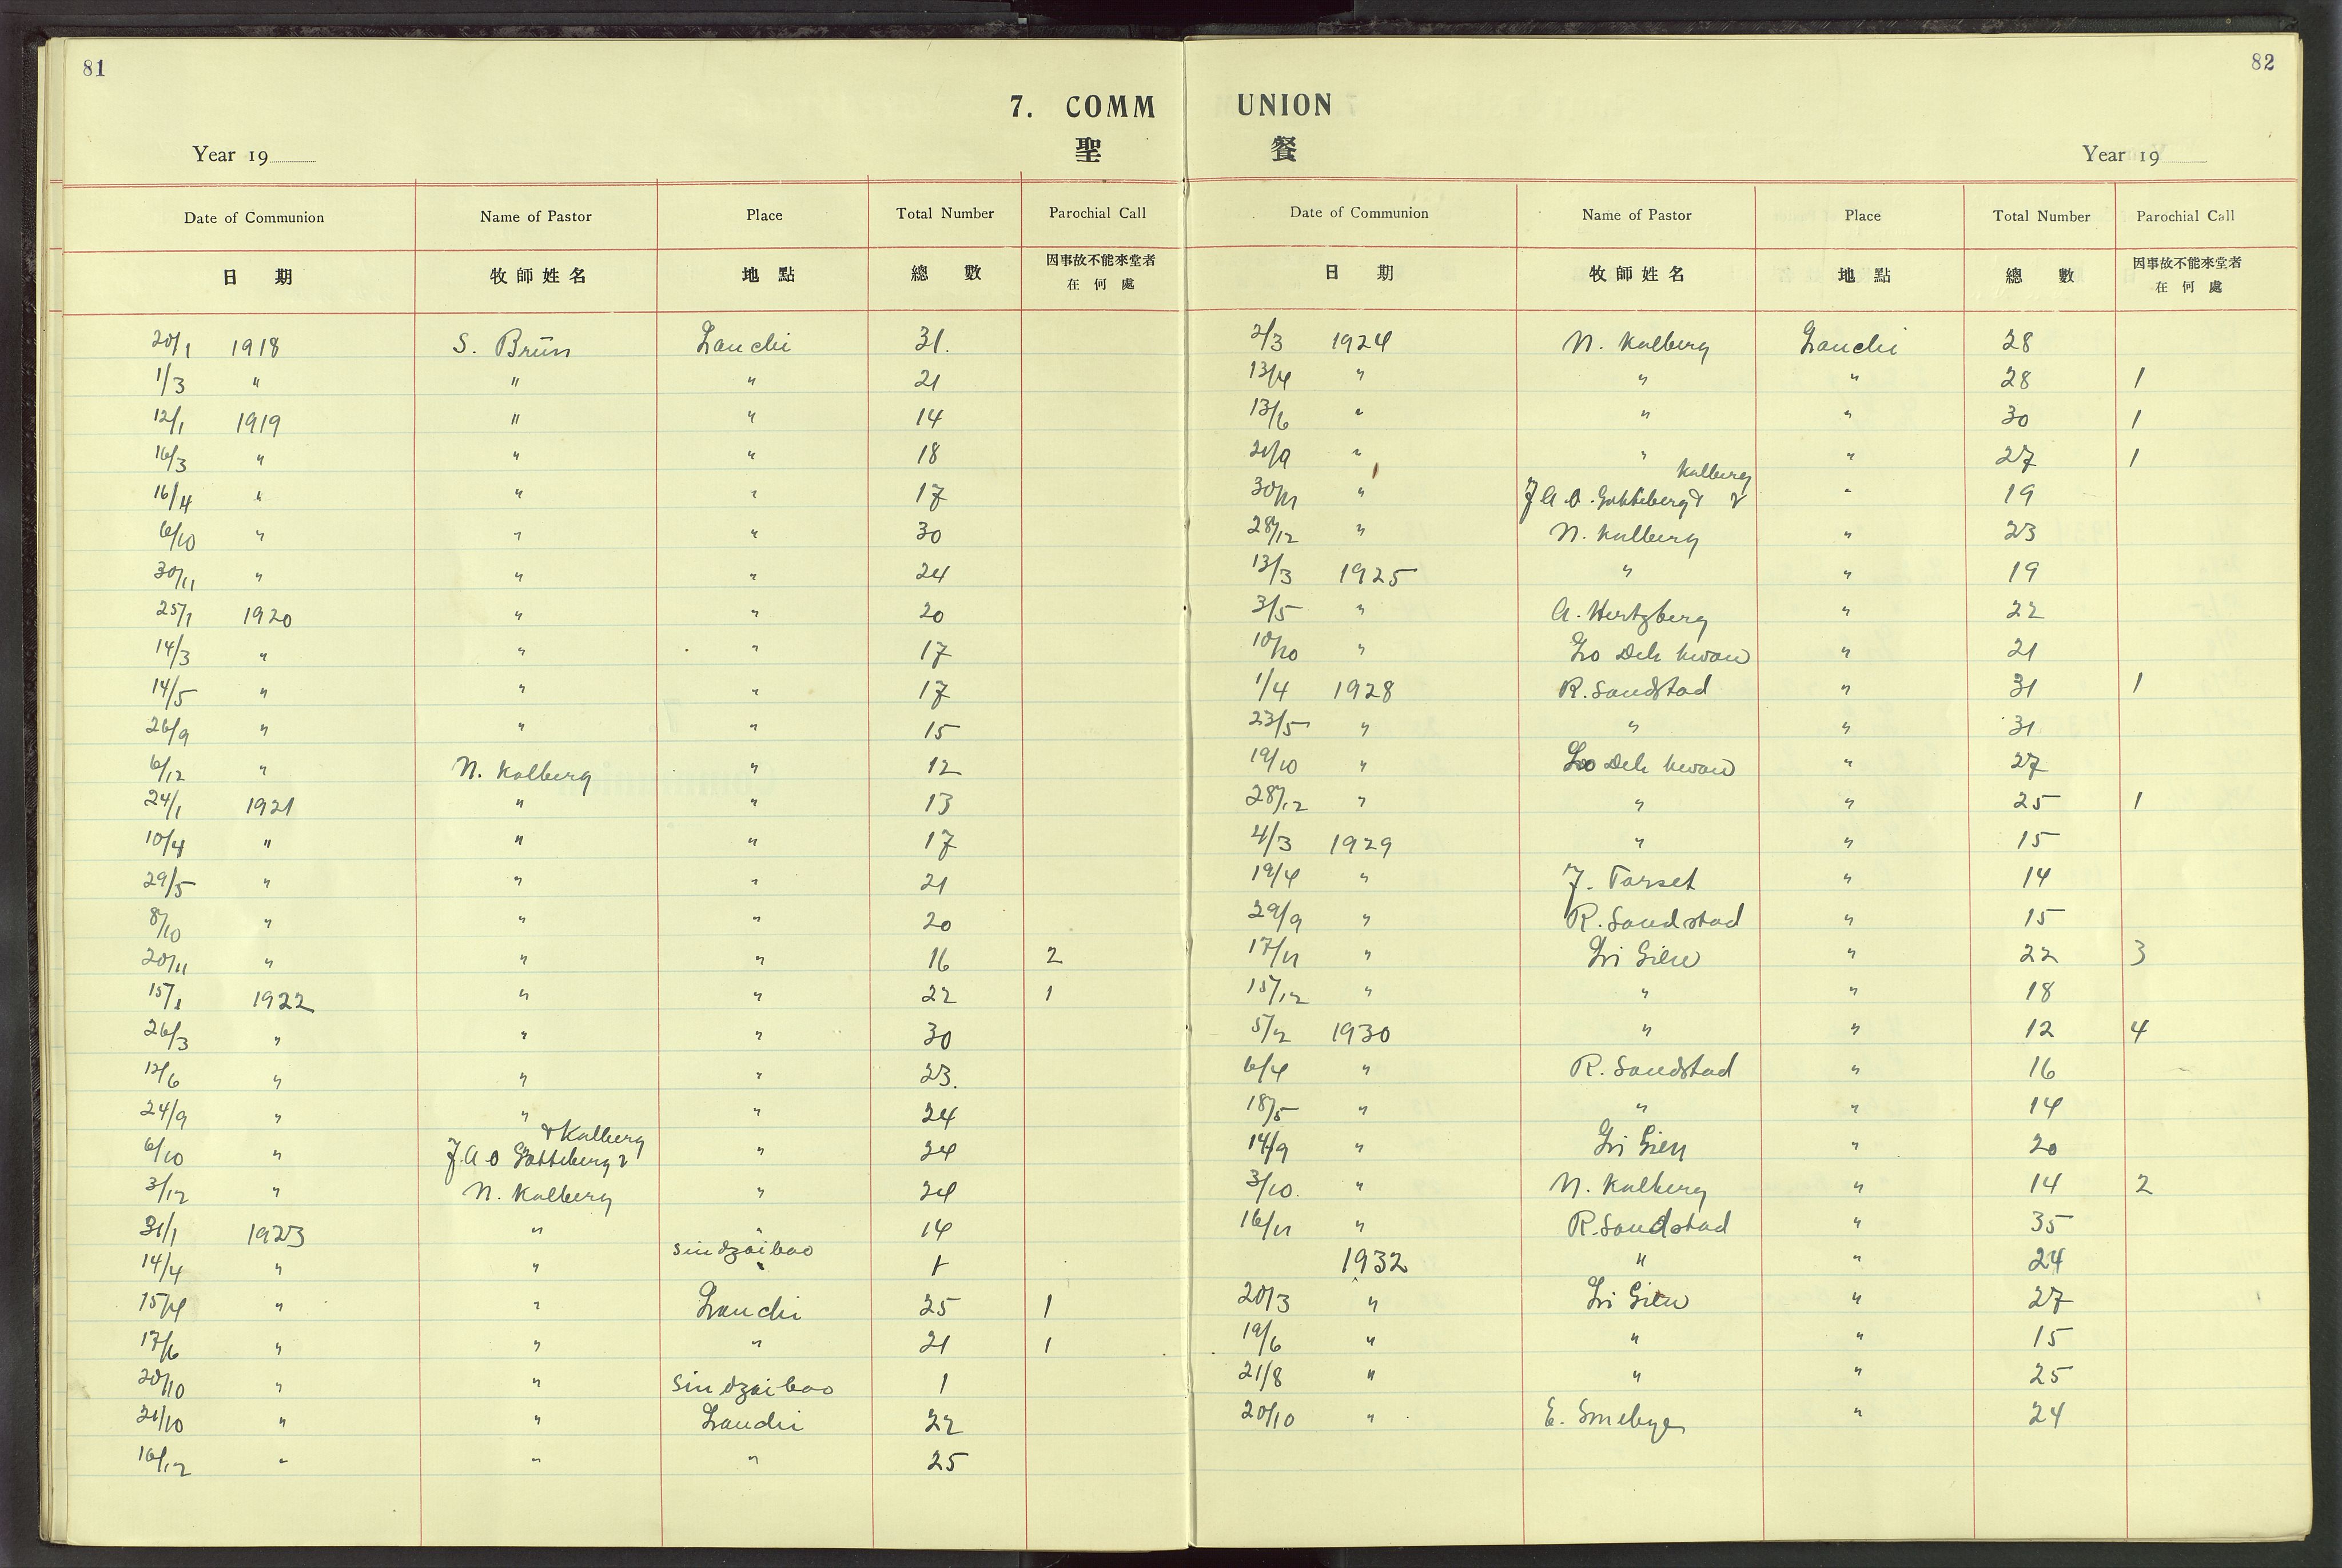 81
7. COMM
聖
Year 19
Date of Communion Name of Pastor Place Total Number Parochial Call
日 期 牧師姓名 地 點 總 數 因事故不能來堂者
在 何 處
20/1 1918 S. Brün Lauchi 31.
1/3 " " " 21
12/1 1919 " " 14
16/3 " " " 18
16/4 " " " 17
6/10 " " " 30
30/11 " " " 24
25/1 1920 " " 20
14/3 " " " 17
14/5 " " " 17
26/9 " " " 15
6/12 " N. Kalberg " 12
24/1 1921 " " 13
10/4 " " " 17
29/5 " " " 21
8/10 " " " 20
20/11 " " " 16 2
15/1 1922 " " 22 1
26/3 " " " 30
12/6 " " " 23.
24/9 " " " 24
& Kalberg
6/10 " J. A O Gotteberg " 24
3/12 " N. Kalberg " 24
31/1 1923 " " 14
14/4 " " Sindzaibao 1
15/4 " " Lauchi 25 1
17/6 " " " 21 1
20/10 " " Sindzaibao 1
21/10 " " Lauchi 22
16/12 " " " 25
82
UNION
餐
Year 19
Date of Communion Name of Pastor Place Total Number Parochial Call
日 期 牧師姓名 地 點 總 數 因事故不能來堂者
在 何 處
2/3 1924 N. Kalberg Lauchi 28
13/4 " " " 28 1
13/6 " " " 30 1
21/9 " " " 27 1
Kalberg
30/11 " J A O. Gotteberg & " 19
28/12 " N. Kalberg " 23
13/3 1925 " " 19
3/5 " A. Hertzberg " 22
10/10 " Lo Deh Kwan " 21
1/4 1928 R. Sandstad " 31 1
23/5 " " " 31
19/10 " Lo Deh Kwan " 27
28/12 " " " 25 1
4/3 1929 " " 15
19/4 " J. Torset " 14
29/9 " R. Sandstad " 15
17/11 " Li Gien " 22 3
15/12 " " " 18
5/2 1930 " " 12 4
6/4 " R. Sandstad " 16
18/5 " " " 14
14/9 " Li Gien " 20
3/10. " N. Kalberg " 14 2
16/11 " R. Sandstad " 35
1932 " " 24
20/3 " Li Gien " 27
19/6 " " " 15
21/8 " " " 25
20/10 " E. Smebye " 24